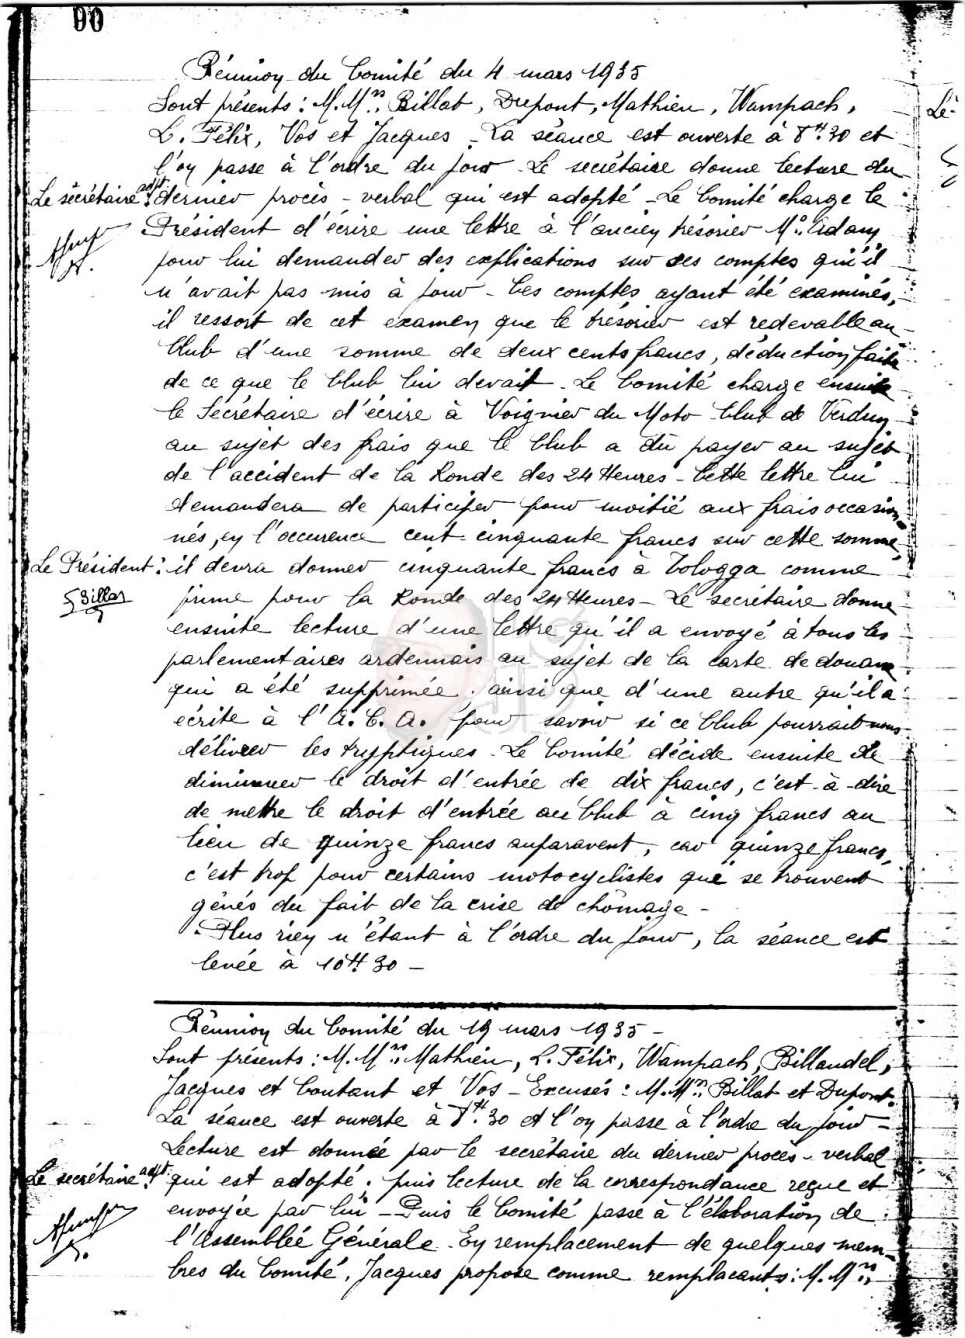 00
Réunion du Comité du 4 mars 1935
Sont présents : M.Mrs Billat, Dupont, Mathieu, Wampach,
L. Félix, Vos et Jacques - La séance est ouverte à 8H.30 et
l'on passe à l'ordre du jour - Le secrétaire donne lecture du
Le sécrétaire adjt :
dernier procès-verbal qui est adopté - Le Comité charge le
Président d'écrire une lettre à l'ancien trésorier Mr Adam
pour lui demander des explications sur ses comptes qu'il
n'avait pas mis à jour - Les comptes ayant été examinés,
il ressort de cet examen que le trésorier est redevable au
Club d'une somme de deux cents francs, déduction faite
de ce que le Club lui devait - Le Comité charge ensuite
le Secrétaire d'écrire à Voignier du Moto-Club de Verdun
au sujet des frais que le Club a dû payer au sujet
de l'accident de la Ronde des 24 Heures - Cette lettre lui
demandera de participer pour moitié aux frais occasion-
nés, en l'occurence cent-cinquante francs sur cette somme,
Le Président :
Billat
il devra donner cinquante francs à Tologga comme
prime pour la Ronde des 24 Heures - Le secrétaire donne
ensuite lecture d'une lettre qu'il a envoyé à tous les
parlementaires ardennais au sujet de la carte de douane
qui a été supprimée. ainsi que d'une autre qu'il a
écrite à l'A.C.A. pour savoir si ce Club pourrait nous
délivrer les tryptiques - Le Comité décide ensuite de
diminuer le droit d'entrée de dix francs, c'est-à-dire
de mettre le droit d'entrée au Club à cinq francs au
lieu de quinze francs auparavent, car quinze francs,
c'est trop pour certains motocyclistes qui se trouvent
gênés du fait de la crise de chômage -
Plus rien n'étant à l'ordre du jour, la séance est
levée à 10H.30 -
Réunion du Comité du 19 mars 1935 -
Sont présents : M.Mrs Mathieu, L. Félix, Wampach, Billaudel,
Jacques et Coutant et Vos - Excusés : M.Mrs Billat et Dupont.
La séance est ouverte à 8H.30 et l'on passe à l'ordre du jour -
Lecture est donnée par le secrétaire du dernier procès-verbal
Le secrétaire adjt :
qui est adopté. puis lecture de la correspondance reçue et
envoyée par lui - Puis le Comité passe à l'élaboration de
l'Assemblée Générale - En remplacement de quelques mem-
bres du Comité, Jacques propose comme remplaçants : M.Mrs
Le